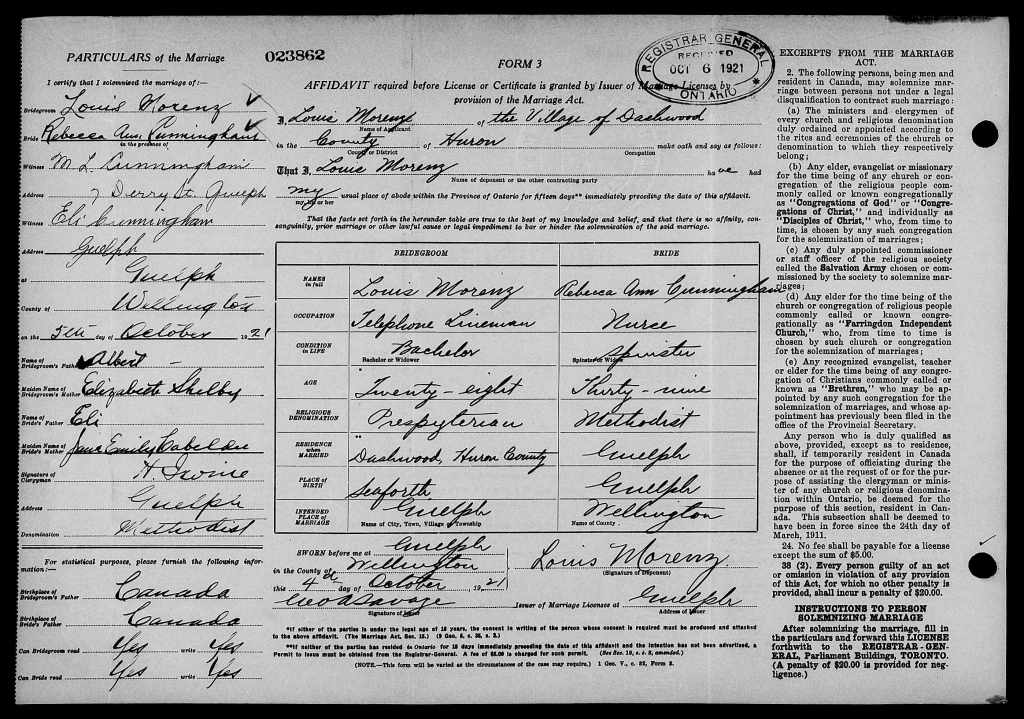 PARTICULARS of the Marriage
I certify that I solemnized the marriage of:—
Bridegroom Louis Morenz
Bride Rebecca Ann Cunningham
in the presence of
Witness M L Cunningham
Address 7 Derry St. Guelph
Witness Eli Cunningham
Address Guelph
at Guelph
County of Wellington
on the 5th day of October 1921
Name of Bridegroom's Father Albert —
Maiden Name of Bridegroom's Mother Elizabeth Skelby
Name of Bride's Father Eli
Maiden Name of Bride's Mother Jane Emily
Signature of Clergyman H Irvine
Address Guelph
Denomination Methodist
For statistical purposes, please furnish the following information:—
Birthplace of Bridegroom's Father Canada
Birthplace of Bride's Father Canada
Can Bridegroom read Yes write Yes
Can Bride read Yes write Yes
023862
FORM 3
REGISTRAR GENERAL
RECEIVED
OCT 6 1921
ONTARIO
AFFIDAVIT required before License or Certificate is granted by Issuer of Marriage Licenses by
provision of the Marriage Act.
I, Louis Morenz of the Village of Dashwood
Name of Applicant
in the County of Huron make oath and say as follows:
County or District Occupation
That I, Louis Morenz have had
Name of deponent or the other contracting party
my usual place of abode within the Province of Ontario for fifteen days** immediately preceding the date of this affidavit.
my, his or her
That the facts set forth in the hereunder table are true to the best of my knowledge and belief, and that there is no affinity, con-
sanguinity, prior marriage or other lawful cause or legal impediment to bar or hinder the solemnization of the said marriage.
BRIDEGROOM BRIDE
NAMES in full Louis Morenz Rebecca Ann Cunningham
OCCUPATION Telephone Lineman Nurse
CONDITION IN LIFE Bachelor Spinster
Bachelor or Widower Spinster or Widow
AGE Twenty-eight Thirty-nine
RELIGIOUS DENOMINATION Presbyterian Methodist
RESIDENCE when MARRIED Dashwood, Huron County Guelph
PLACE OF BIRTH Seaforth Guelph
INTENDED PLACE OF MARRIAGE Guelph Wellington
Name of City, Town, Village or Township Name of County
SWORN before me at Guelph
in the County of Wellington
this 4th day of October 1921
Geo A Savage
Signature of Issuer
Louis Morenz
(Signature of Deponent)
Issuer of Marriage Licenses at Guelph
Address of Issuer
*If either of the parties is under the legal age of 18 years, the consent in writing of the person whose consent is required must be produced and attached
to the above affidavit. (The Marriage Act, Sec. 15.)
**If neither of the parties has resided in Ontario for 15 days immediately preceding the date of this affidavit and the intention has not been advertised, a
Permit to Issue must be obtained from the Registrar-General. A fee of $5.00 is charged for such permit.
(NOTE.—This form will be varied as the circumstances of the case may require.) 1 Geo. V., c. 32, Form 3.
EXCERPTS FROM THE MARRIAGE
ACT.
2. The following persons, being men and
resident in Canada, may solemnize mar-
riage between persons not under a legal
disqualification to contract such marriage:
(a) The ministers and clergymen of
every church and religious denomination
duly ordained or appointed according to
the rites and ceremonies of the church or
denomination to which they respectively
belong;
(b) Any elder, evangelist or missionary
for the time being of any church or con-
gregation of the religious people com-
monly called or known congregationally
as "Congregations of God" or "Congre-
gations of Christ," and individually as
"Disciples of Christ," who, from time to
time, is chosen by any such congregation
for the solemnization of marriages;
(c) Any duly appointed commissioner
or staff officer of the religious society
called the Salvation Army chosen or com-
missioned by the society to solemnize mar-
riages;
(d) Any elder for the time being of the
church or congregation of religious people
commonly called or known congrega-
tionally as "Farringdon Independent
Church," who, from time to time is
chosen by such church or congregation
for the solemnization of marriages;
(e) Any recognized evangelist, teacher
or elder for the time being of any congre-
gation of Christians commonly called or
known as "Brethren," who may be ap-
pointed by any such congregation for the
solemnization of marriages, and whose appoint-
ment has previously been filed in the
office of the Provincial Secretary.
Any person who is duly qualified as
above, provided, except as to residence,
shall, if temporarily resident in Canada
for the purpose of officiating during the
absence or at the request of or for the pur-
pose of assisting the clergyman or minis-
ter of any church or religious denomina-
tion within Ontario, be deemed for the
purpose of this section, resident in Can-
ada. This subsection shall be deemed to
have been in force since the 24th day of
March, 1911.
24. No fee shall be payable for a license
except the sum of $5.00.
38 (2). Every person guilty of an act
or omission in violation of any provision
of this Act, for which no other penalty is
provided, shall incur a penalty of $20.00.
INSTRUCTIONS TO PERSON
SOLEMNIZING MARRIAGE
After solemnizing the marriage, fill in
the particulars and forward this LICENSE
forthwith to the REGISTRAR-GEN-
ERAL, Parliament Buildings, TORONTO.
(A penalty of $20.00 is provided for neg-
ligence.)